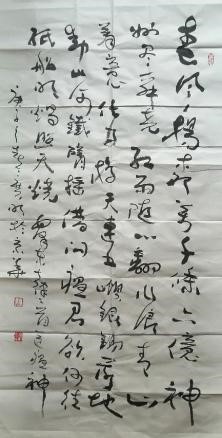 春风杨柳万千条六億神
州尽舜尧红雨随心翻作浪青山
着意化为桥天连五岭银锄落地
動三河鐵臂摇借问瘟君欲何往
纸船明烛照天烧毛泽东送瘟神
庚子春